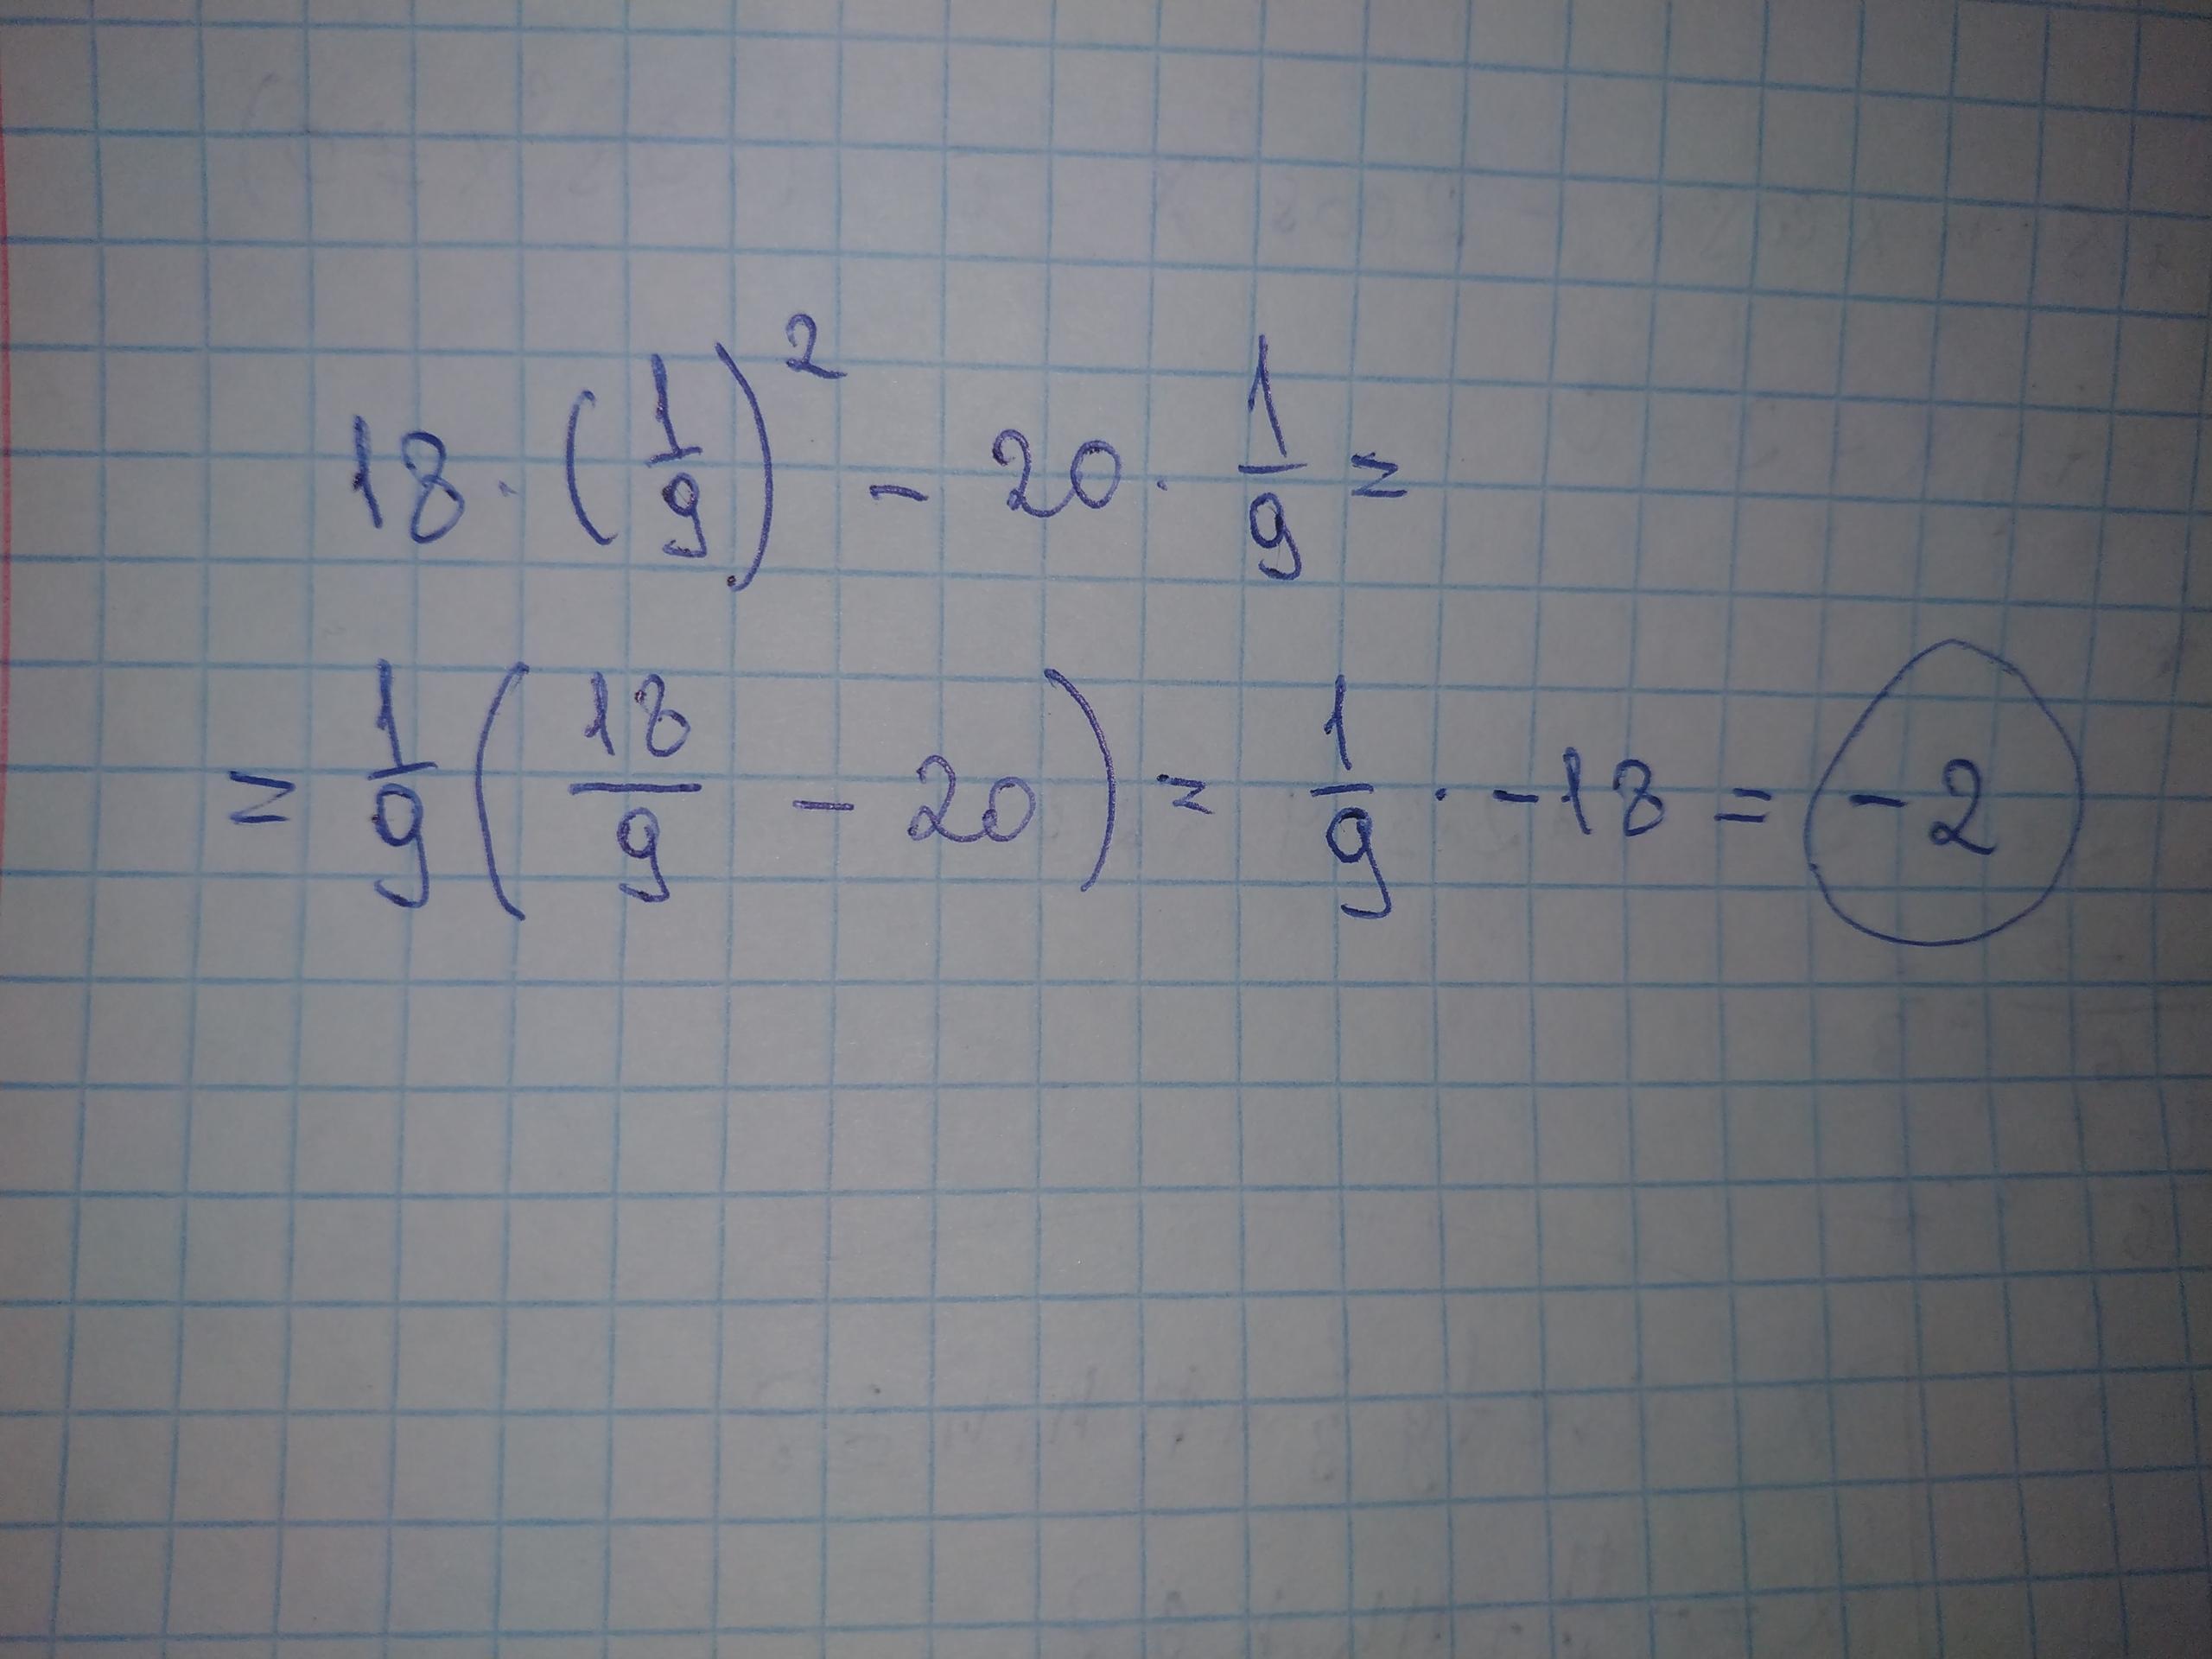 18 · (1/9)² - 20 · 1/9 =
= 1/9 (18/9 - 20) = 1/9 · -18 = -2